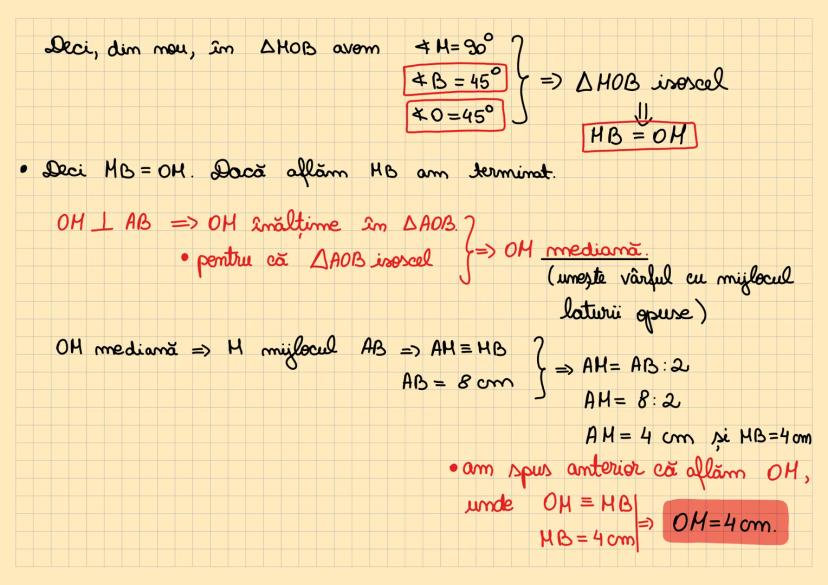 Deci, din nou, în ΔMOB avem ∢M=90°
∢B=45°
∢O=45°
} => ΔMOB isoscel
⇓
MB = OM
• Deci MB = OM. Dacă aflăm MB am terminat.
OM ⊥ AB => OM înălțime în ΔAOB.
• pentru că ΔAOB isoscel
} => OM mediană.
(unește vârful cu mijlocul
laturii opuse)
OM mediană => M mijlocul AB => AM ≡ MB
AB = 8 cm
} => AM = AB:2
AM = 8:2
AM = 4 cm și MB=4cm
• am spus anterior că aflăm OM,
unde OM ≡ MB
MB = 4cm
| => OM=4cm.